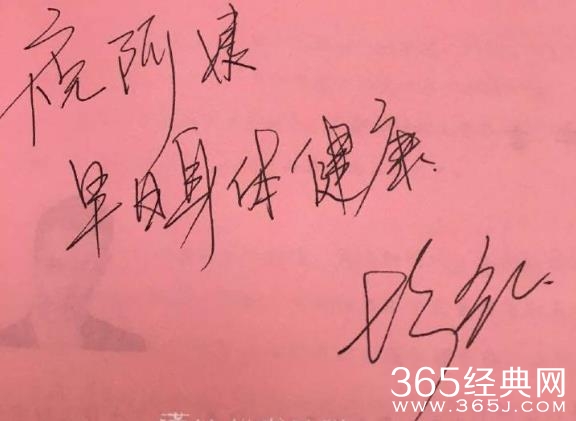 祝阿娘
早日身体健康
365经典网
www.365j.com